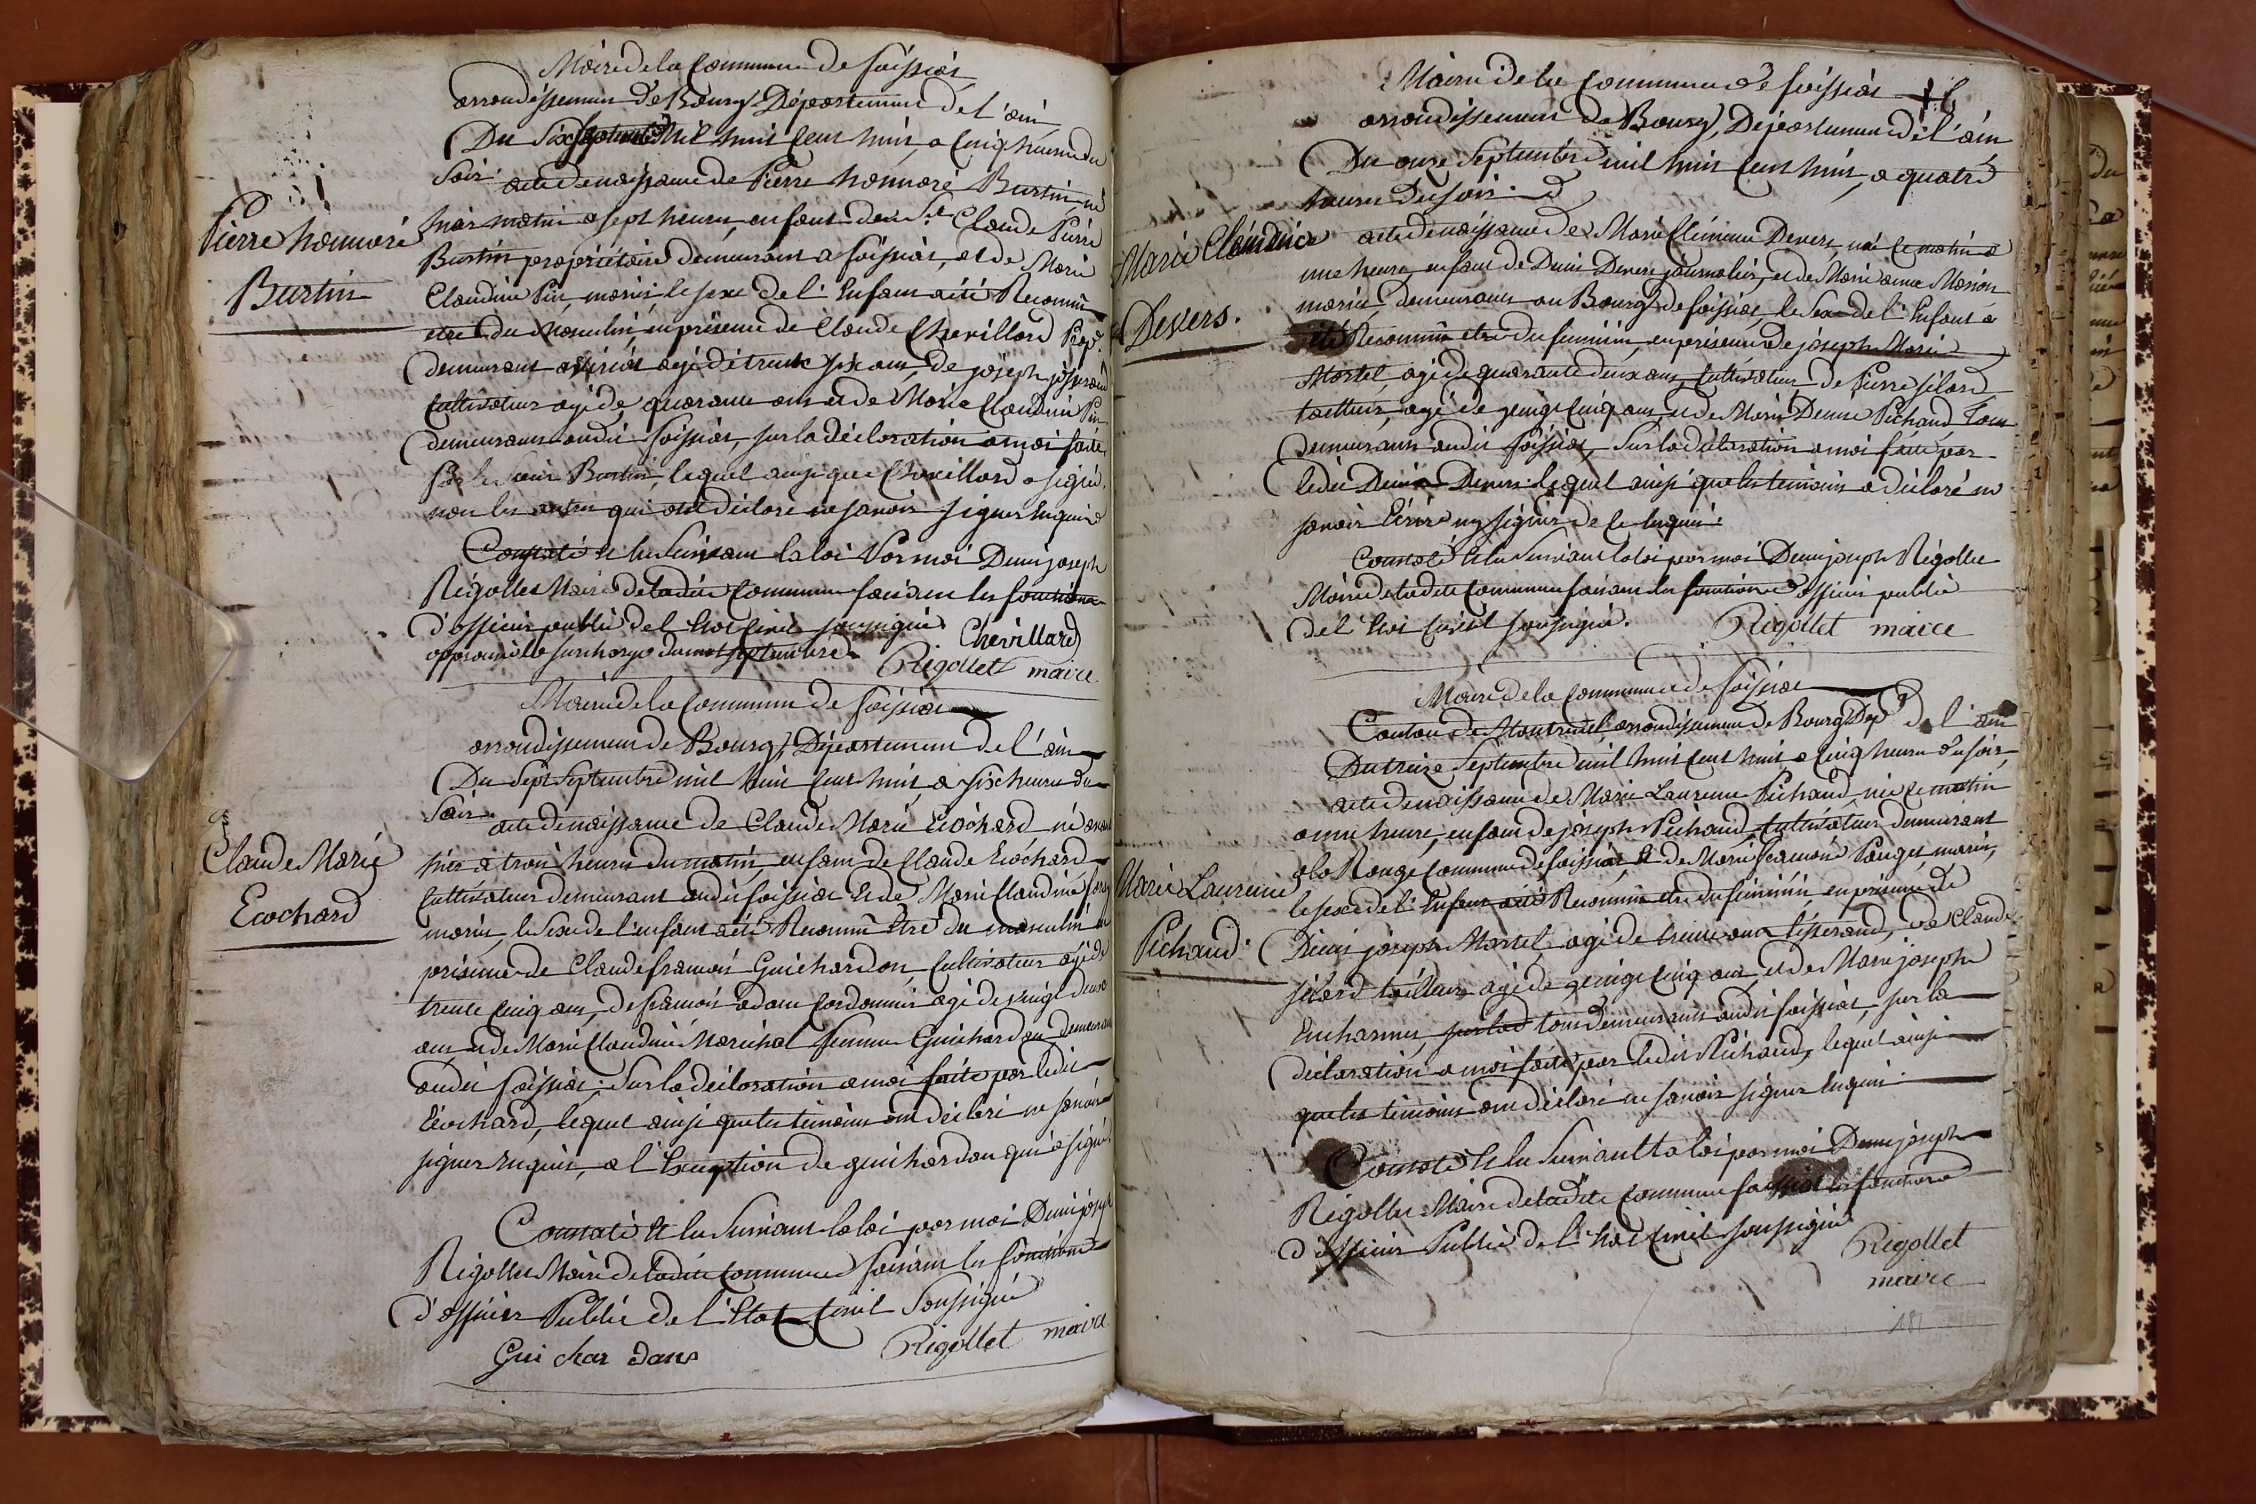 Mairie de la Commune de foissiat
arrondissement de Bourg, Département de l'ain
Du Six septembre Mil huit Cent huit, a Cinq heures du
Soir.
acte de naissance de Pierre honnoré Burtin né
Pierre honnoré
Burtin
hier matin a sept heures, enfant de Sr Claude Pierre
Burtin propriétaire demeurant a foissiat, et de Marie
Claudine Pin, mariés, le sexe de l'Enfant a été Reconnu
etre du Masculin, en présence de Claude Chevillard Prop.
demeurant agé de trente six ans, de joseph josserand
Cultivateur agé de quarante ans et de Marie Claudine Pin
demeurants audit foissiat, sur la déclaration a moi faite
Par le sieur Burtin, lequel ainsi que Chevillard a signé
non les autres qui ont déclaré ne savoir signer Enquis
Constaté et lu Suivant la loi Par moi Denis joseph
Rigollet Maire de ladite Commune faisant les fonctions
d'officier public de l'Etat Civil soussigné
approuvé la surcharge du mot septembre.
Chevillard
Rigollet maire
Mairie de la Commune de foissiat
arrondissement de Bourg, Département de l'ain
Du Sept Septembre mil huit Cent huit, a six heures du
Soir.
acte de naissance de Claude Marie Ecochard né avant
Claude Marie
Ecochard
hier a trois heures du matin, enfant de Claude Ecochard
Cultivateur demeurant audit foissiat et de Marie Claudine
mariés, le Sexe de l'enfant a été Reconnu Etre du masculin en
présence de Claude françois Guichardon, Cultivateur agé de
trente Cinq ans, de françois adam Cordonnier agé de vingt deux
ans, et de Marie Claudine Maréchal femme Guichardon demeurants
audit foissiat, Sur la déclaration a moi faite par ledit
Ecochard, lequel ainsi que les témoins ont déclaré ne savoir
signer Enquis, a l'Exception de guichardon qui a signé
Constaté et lu Suivant la loi par moi Denis joseph
Rigollet Maire de ladite Commune faisant les fonctions
d'officier Public de l'Etat Civil Soussigné
Gui char dans
Rigollet maire
Mairie de la Commune de foissiat
arrondissement de Bourg, Département de l'ain
Du onze Septembre mil huit Cent huit, a quatre
heures du soir.
Marie Cléménce
Devers.
acte de naissance de Marie Clémence Devers, née Ce matin a
une heure, enfant de Denis Devers journalier, et de Marie anne Marion
mariés, demeurants au Bourg de foissiat, le Sexe de l'Enfant a
été Reconnu etre du feminin, en présence de joseph Marie
Martel, agé de quarante deux ans, Cultivateur, de Pierre jilard
tailleur, agé de vingt Cinq ans, et de Marie Denise Pichaud Tous
demeurants audit foissiat, Sur la déclaration a moi faite par
ledit Denis Devers lequel ainsi que les témoins a déclaré ne
savoir Ecrire ny signer de Ce Enquis.
Constaté Et lu Suivant la loi par moi Denis joseph Rigollet
Maire de ladite Commune faisant les fonctions d'officier public
de l'Etat Civil soussigné.
Rigollet maire
Mairie de la Commune de foissiat
Canton de Montrevel arrondissement de Bourg, Dept de l'ain
Du treize Septembre mil huit Cent huit, a Cinq heures du soir,
acte de naissance de Marie Laurence Pichaud, née Ce matin
a une heure, enfant de joseph Pichaud, Cultivateur, demeurant
a la Rouge Commune de foissiat, et de Marie françoise Pauget, mariés,
Marie Laurence
Pichaud.
le sexe de l'Enfant a été Reconnu etre du feminin, en présence de
Denis joseph Martel, agé de trente ans tisserand, de Claude
jilard tailleur, agé de vingt Cinq ans, et de Marie joseph
tous demeurants audit foissiat, sur la
déclaration a moi faite par ledit Pichaud, lequel ainsi
que les témoins ont déclaré ne savoir signer Enquis.
Constaté Et lu Suivant la loi par moi Denis joseph
Rigollet Maire de ladite Commune faisant les fonctions
d'officier Public de l'Etat Civil soussigné
Rigollet
maire
181